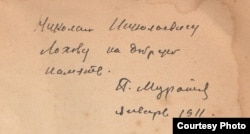 Николаю Николаевичу
Лохову на добрую
память.
П. Муратов
Январь 1911.
Courtesy Photo